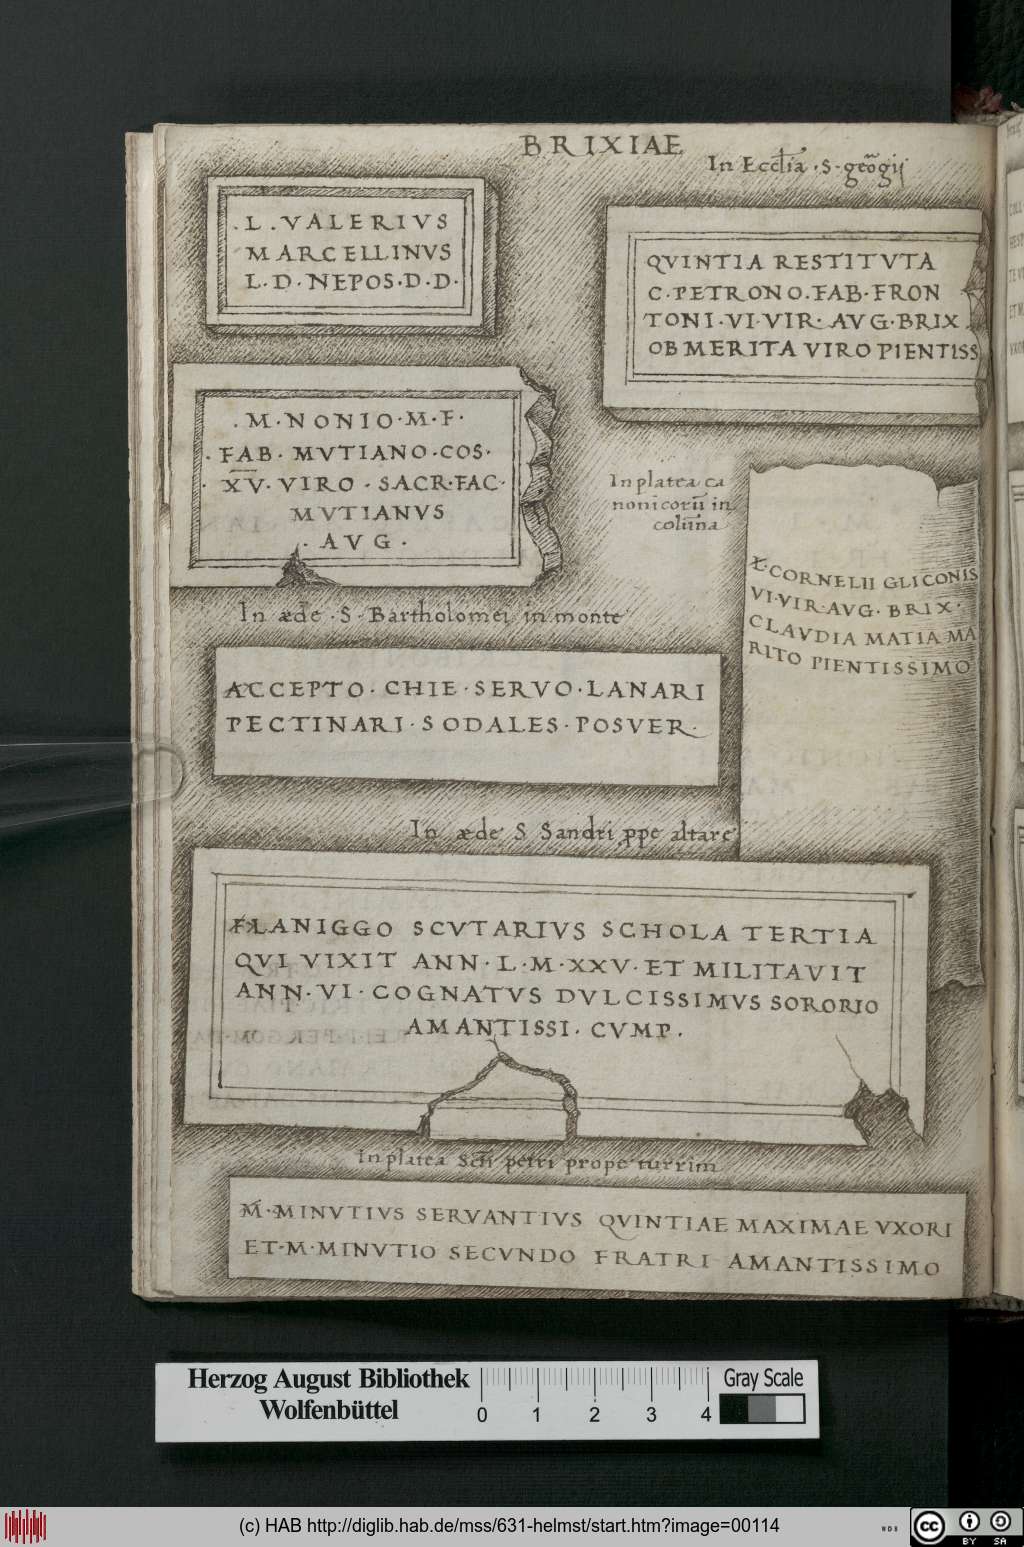 BRIXIAE
·L·VALERIVS
MARCELLINVS
L·D·NEPOS·D·D·
In Eccl̄ia ·S· geōgij
QVINTIA RESTITVTA
C·PETRONO·FAB·FRON
TONI·VI·VIR·AVG·BRIX
OB MERITA VIRO PIENTISS
·M·NONIO·M·F·
·FAB·MVTIANO·COS·
·XV·VIRO·SACR·FAC·
MVTIANVS
·AVG·
In platea ca
nonicorū in
colūna
L·CORNELII GLICONIS
VI·VIR·AVG·BRIX·
CLAVDIA MATIA MA
RITO PIENTISSIMO
In æde ·S· Bartholomei in monte
ACCEPTO·CHIE·SERVO·LANARI
PECTINARI·SODALES·POSVER·
In æde S Sandri ꝓpe altare
FLANIGGO SCVTARIVS SCHOLA TERTIA
QVI VIXIT ANN·L·M·XXV·ET MILITAVIT
ANN·VI·COGNATVS DVLCISSIMVS SORORIO
AMANTISSI·CVMP·
In platea Scti petri prope turrim
M·MINVTIVS SERVANTIVS QVINTIAE MAXIMAE VXORI
ET·M·MINVTIO SECVNDO FRATRI AMANTISSIMO
Herzog August Bibliothek
Wolfenbüttel
0 1 2 3 4
Gray Scale
(c) HAB http://diglib.hab.de/mss/631-helmst/start.htm?image=00114
WDB
cc BY SA